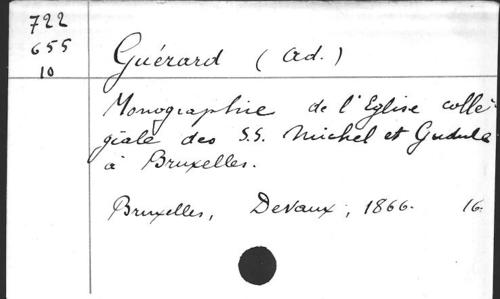 722
655
10
Guérard (Ad.)
Monographie de l'Eglise collé-
giale des S.S. Michel et Gudule
à Bruxelles.
Bruxelles, Devaux, 1866. 16.